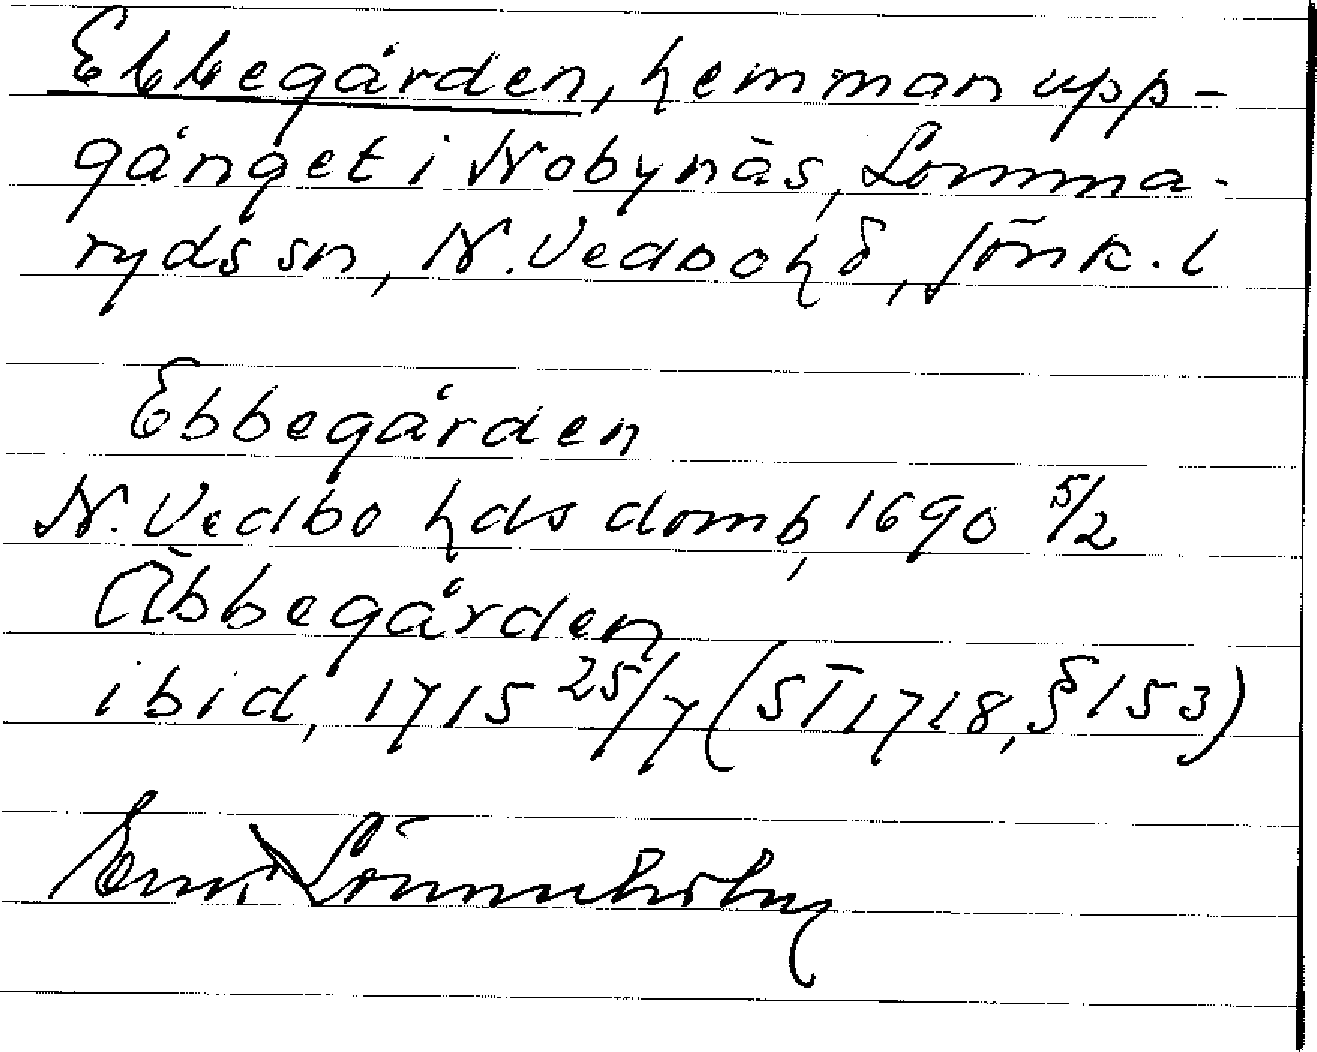 Ebbegården, hemman upp-
gånget i Nobynäs, Lomma-
ryds sn, N. Vedbo hd, Jönk. l
Ebbegården
N. Vedbo hds domb, 1690 5/2
Äbbegården
ibid, 1715 25/7 (ST 1718, § 153)